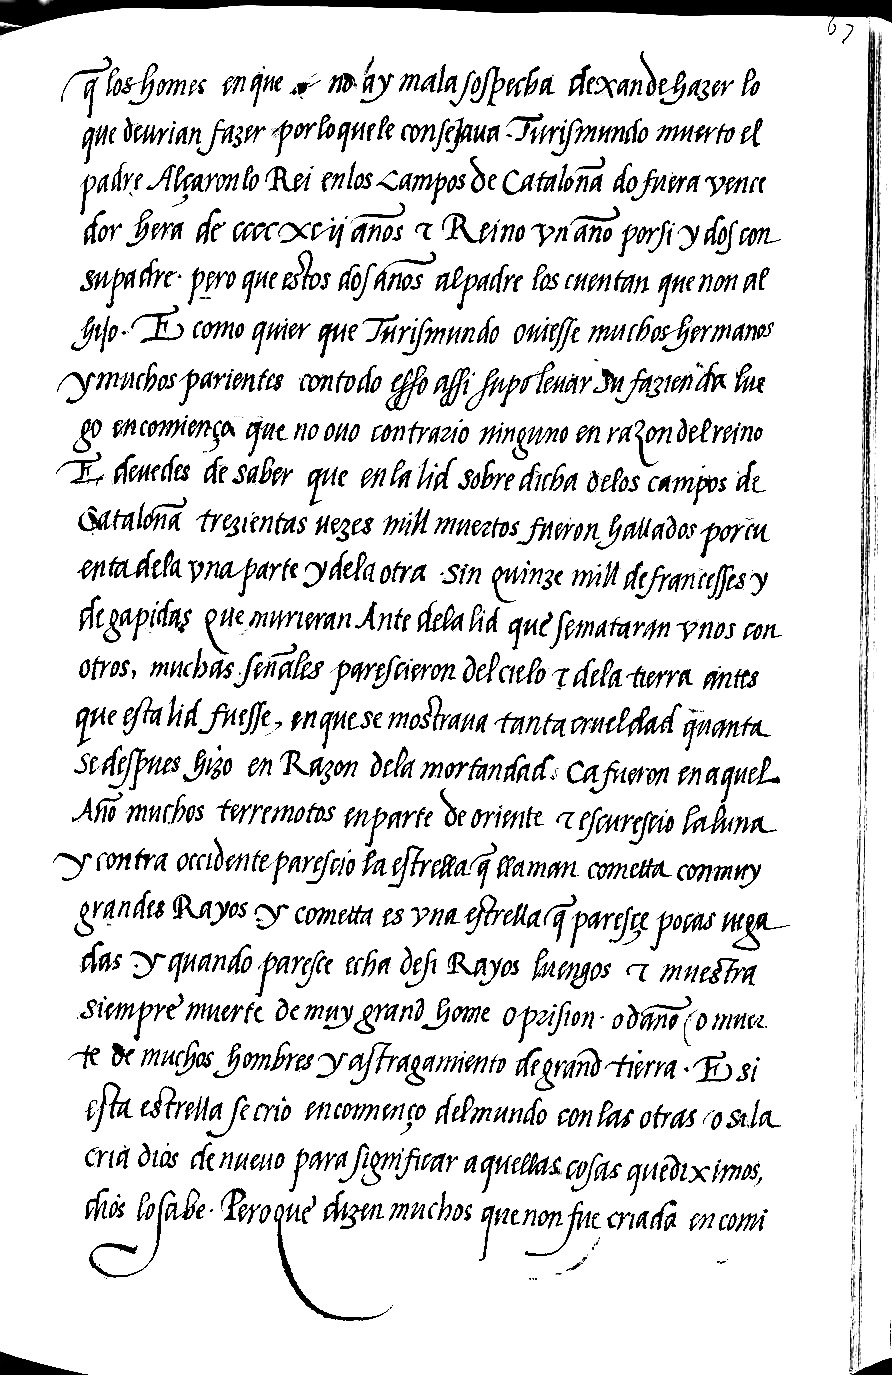 67
q̃ los homes en que no ay mala sospecha dexan de hazer lo
que deurian fazer por lo que le consejaua. Turismundo muerto el
padre Alçaronlo Rei en los Campos de Cataloña do fuera vence
dor hera de ccccxcij años τ Reino vn año por si y dos con
su padre. pero que estos dos años al padre los cuentan que non al
hijo. E como quier que Turismundo ouiesse muchos hermanos
y muchos parientes con todo esso assi supo leuar su fazienda lue
go en comienço que no ouo contrario ninguno en razon del reino
E deuedes de saber que en la lid sobre dicha de los campos de
Cataloña trezientas uezes mill muertos fueron hallados por cu
enta de la vna parte y de la otra sin quinze mill de francesses y
de gapidas que murieran Ante de la lid que se mataran vnos con
otros, muchas señales parescieron del cielo τ de la tierra antes
que esta lid fuesse, en que se mostraua tanta crueldad quanta
se despues hizo en Razon de la mortandad. Ca fueron en aquel
Año muchos terremotos en parte de oriente τ escurescio la luna
y contra occidente parescio la estrella q̃ llaman cometta con muy
grandes Rayos y cometta es vna estrella q̃ paresçe pocas uega
das y quando paresce echa de si Rayos luengos τ muestra
siempre muerte de muy grand home o prision. o daño o muer
te de muchos hombres y astragamiento de grand tierra. E si
esta estrella se crio en començo del mundo con las otras o si la
cria dios de nueuo para significar aquellas cosas que diximos,
dios lo sabe. Pero que dizen muchos que non fue criada en comi